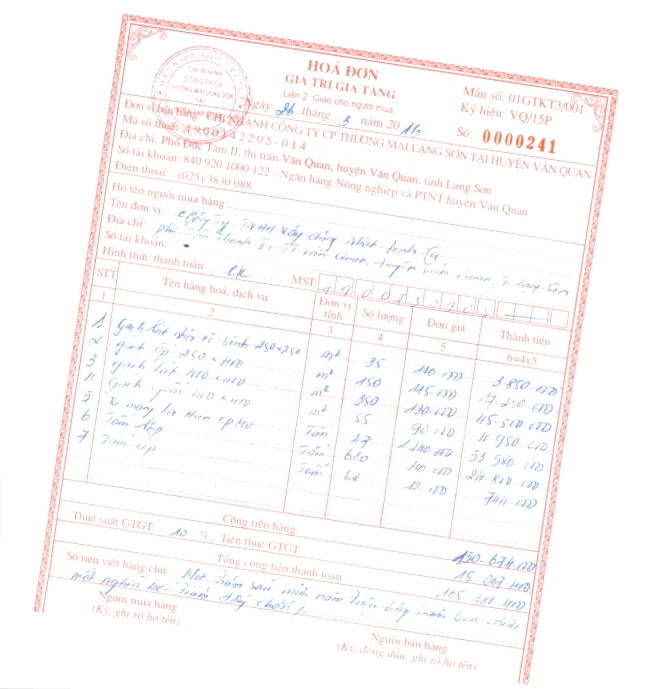 HOÁ ĐƠN
GIÁ TRỊ GIA TĂNG
Liên 2: Giao cho người mua
Ngày 26 tháng 3 năm 2016
Mẫu số: 01GTKT3/001
Ký hiệu: VQ/15P
Số: 0000241
CHI NHÁNH
CÔNG TY CP
THƯƠNG MẠI LẠNG SƠN
TẠI
Đơn vị bán hàng: CHI NHÁNH CÔNG TY CP THƯƠNG MẠI LẠNG SƠN TẠI HUYỆN VĂN QUAN
Mã số thuế: 4900142205-014
Địa chỉ: Phố Đức Tâm II, thị trấn Văn Quan, huyện Văn Quan, tỉnh Lạng Sơn
Số tài khoản: 840 920 1000 122 - Ngân hàng Nông nghiệp và PTNT huyện Văn Quan
Điện thoại: (025) 3830 088
Họ tên người mua hàng
Tên đơn vị: Công ty TNHH xây dựng
Địa chỉ: phố Thanh
Số tài khoản:
Hình thức thanh toán CK MST
STT Tên hàng hoá, dịch vụ Đơn vị tính Số lượng Đơn giá Thành tiền
1 2 3 4 5 6=4x5
1 Gạch 250x250 m² 35 110.000 3.850.000
2 gạch ốp 250 x 400 m² 150 115.000 17.250.000
3 gạch lát 400 x 400 m² 350 130.000 45.500.000
4 Gạch 400 x 400 m² 55 90.000 4.950.000
5 Xi măng Tấn 47 1.140.000 53.580.000
6 Tấm lợp Tấm 620 40.000 24.800.000
7 Tấm úp Tấm 62 12.000 744.000
Cộng tiền hàng: 150.674.000
Thuế suất GTGT 10 %, Tiền thuế GTGT 15.067.400
Tổng cộng tiền thanh toán 165.741.400
Số tiền viết bằng chữ: Một trăm sáu mươi năm triệu bảy trăm bốn mươi
một nghìn bốn trăm đồng chẵn
Người mua hàng
(Ký, ghi rõ họ tên)
Người bán hàng
(Ký, đóng dấu, ghi rõ họ tên)